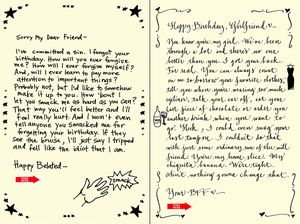 Sorry My Dear Friend~
I've committed a sin. I forgot your
birthday. How will you ever forgive
me? How will I ever forgive myself?
And, will I ever learn to pay more
attention to important things?
Probably not, but I'd like to somehow
make it up to you. How 'bout I
let you smack me as hard as you can?
That way you'll feel better and I'll
feel really hurt. And I won't even
tell anyone you smacked me for
forgetting your birthday. If they
see the bruise, I'll just say I tripped
and fell like the idiot that I am.
Happy Belated~
SMACK
Happy Birthday, Girlfriend
You know you're my gal. We've been
through a lot and there's no one
better than you. I got you back.
For real. You can always count
on me to borrow you favorite clothes,
tell you when you're wearing too much
eyeliner, talk your ear off, eat your
last piece of chocolate or order you
another drink when you want to
go. Heck, I could even snag your
last tampon. I couldn't do that
with just some ordinary, run of the mill
friend. You're my home slice! My
chiquita banana. We're tight,
sista, nothing gonna change that.
Your BFF